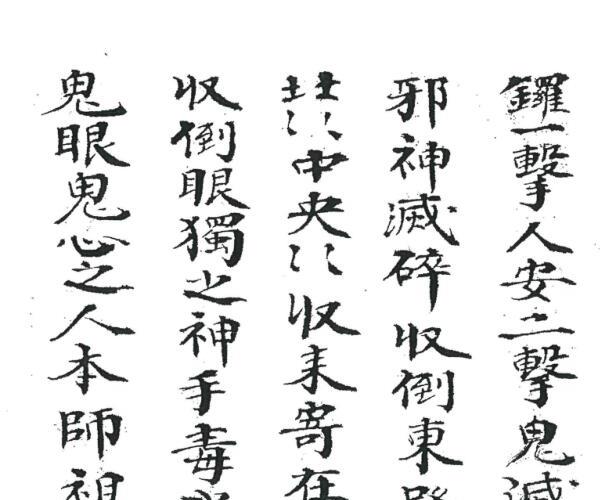 鑼一擊人安二擊鬼滅
邪神滅碎収倒東
北〻中央〻収来寄在
収倒眼獨之神手毒
鬼眼鬼心之人本師祖